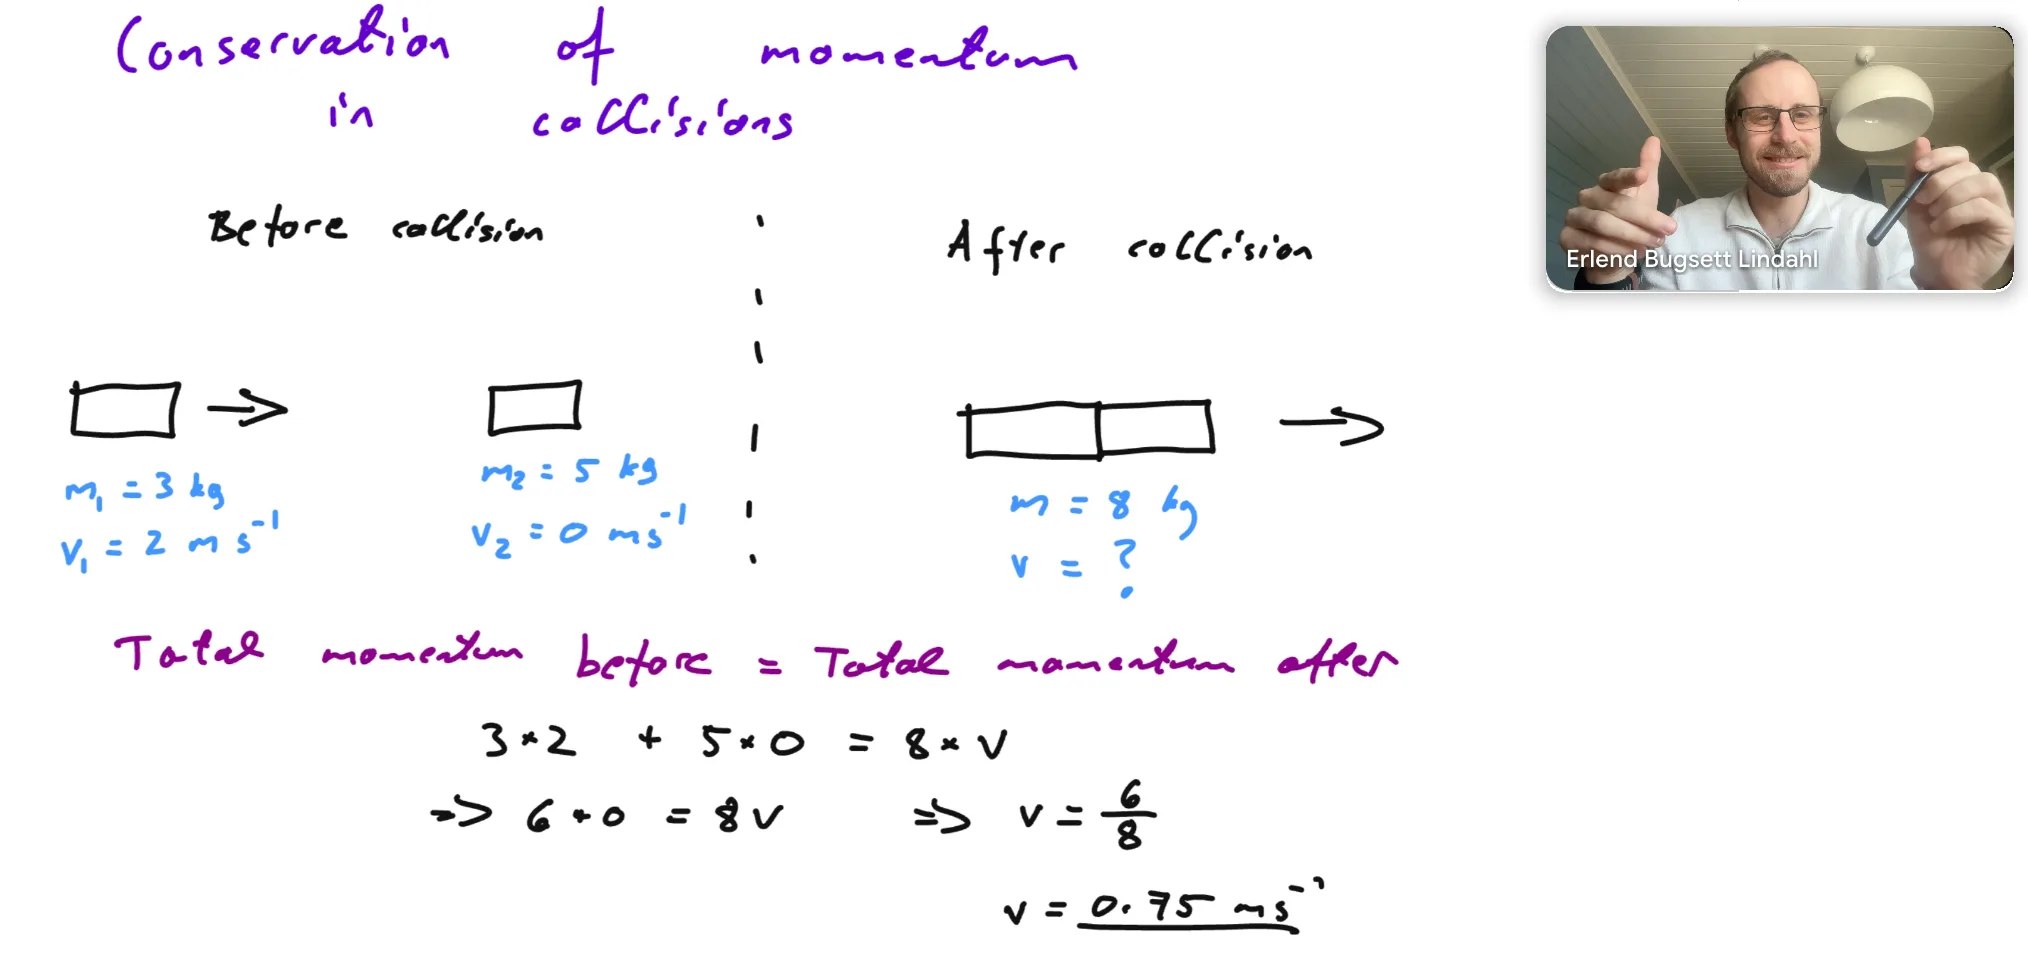 Conservation of momentum
in collisions
Erlend Bugsett Lindahl
Before collision
After collision
m₁ = 3 kg
v₁ = 2 m s⁻¹
m₂ = 5 kg
v₂ = 0 ms⁻¹
m = 8 kg
v = ?
Total momentum before = Total momentum after
3 × 2 + 5 × 0 = 8 × v
=> 6 + 0 = 8v => v = 6/8
v = 0.75 ms⁻¹